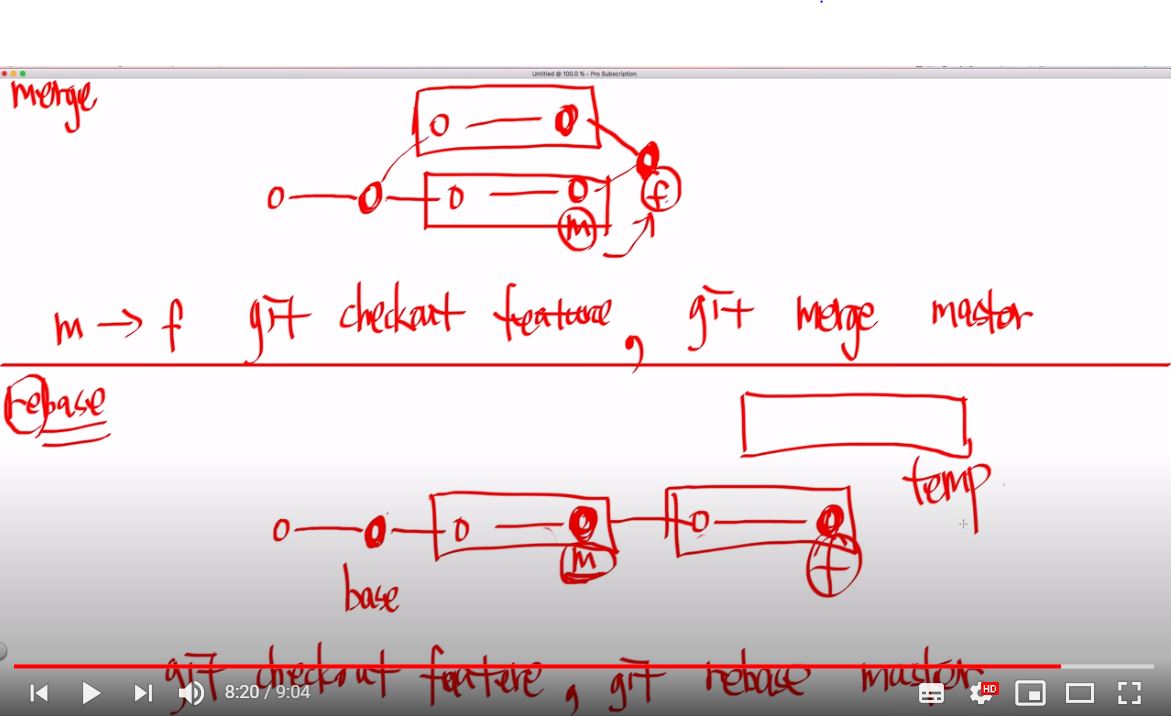 Untitled @ 100.0 % - Pro Subscription
merge
f
m
m → f git checkout feature, git merge master
rebase
temp
m
f
base
git checkout feature, git rebase master
8:20 / 9:04
HD